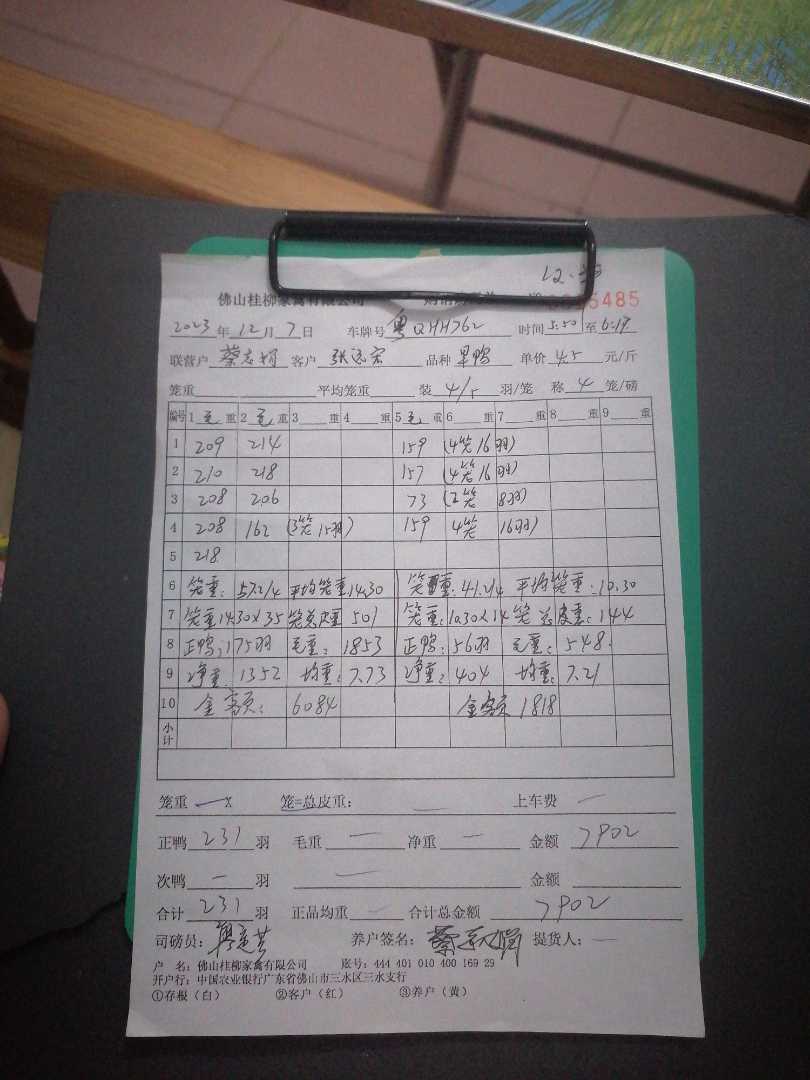 12.
佛山桂柳家禽有限公司 5485
2023年12月7日 车牌号 粤QHH762 时间5:50至6:19
联营户 蔡志娟 客户 张远宏 品种 单鸭 单价 4.5 元/斤
笼重 平均笼重 装 4/5 羽/笼 称 4 笼/磅
编号 1 毛 重 2 毛 重 3 重 4 重 5 毛 重 6 重 7 重 8 重 9 重
1 209 214 159 (4笼16羽)
2 210 218 157 (4笼16羽)
3 208 206 73 (2笼 8羽)
4 208 162 (3笼15羽) 159 4笼 16羽)
5 218
6 笼重: 57.2/4 平均笼重14.30 笼重: 41.2/4 平均笼重: 10.30
7 笼重14.30×35 笼总皮重 501 笼重: 10.30×14 笼总皮重: 144
8 正鸭: 175羽 毛重: 1853 正鸭: 56羽 毛重: 548
9 净重: 1352 均重: 7.73 净重: 404 均重: 7.21
10 金额: 6084 金额 1818
小计
笼重 — X 笼=总皮重: — 上车费 —
正鸭 231 羽 毛重 — 净重 — 金额 7902
次鸭 — 羽 — 金额
合计 231 羽 正品均重 — 合计总金额 7902
司磅员: 养户签名: 蔡志娟 提货人: —
户 名: 佛山桂柳家禽有限公司 账号: 444 401 010 400 169 29
开户行: 中国农业银行广东省佛山市三水区三水支行
①存根(白) ②客户(红) ③养户(黄)